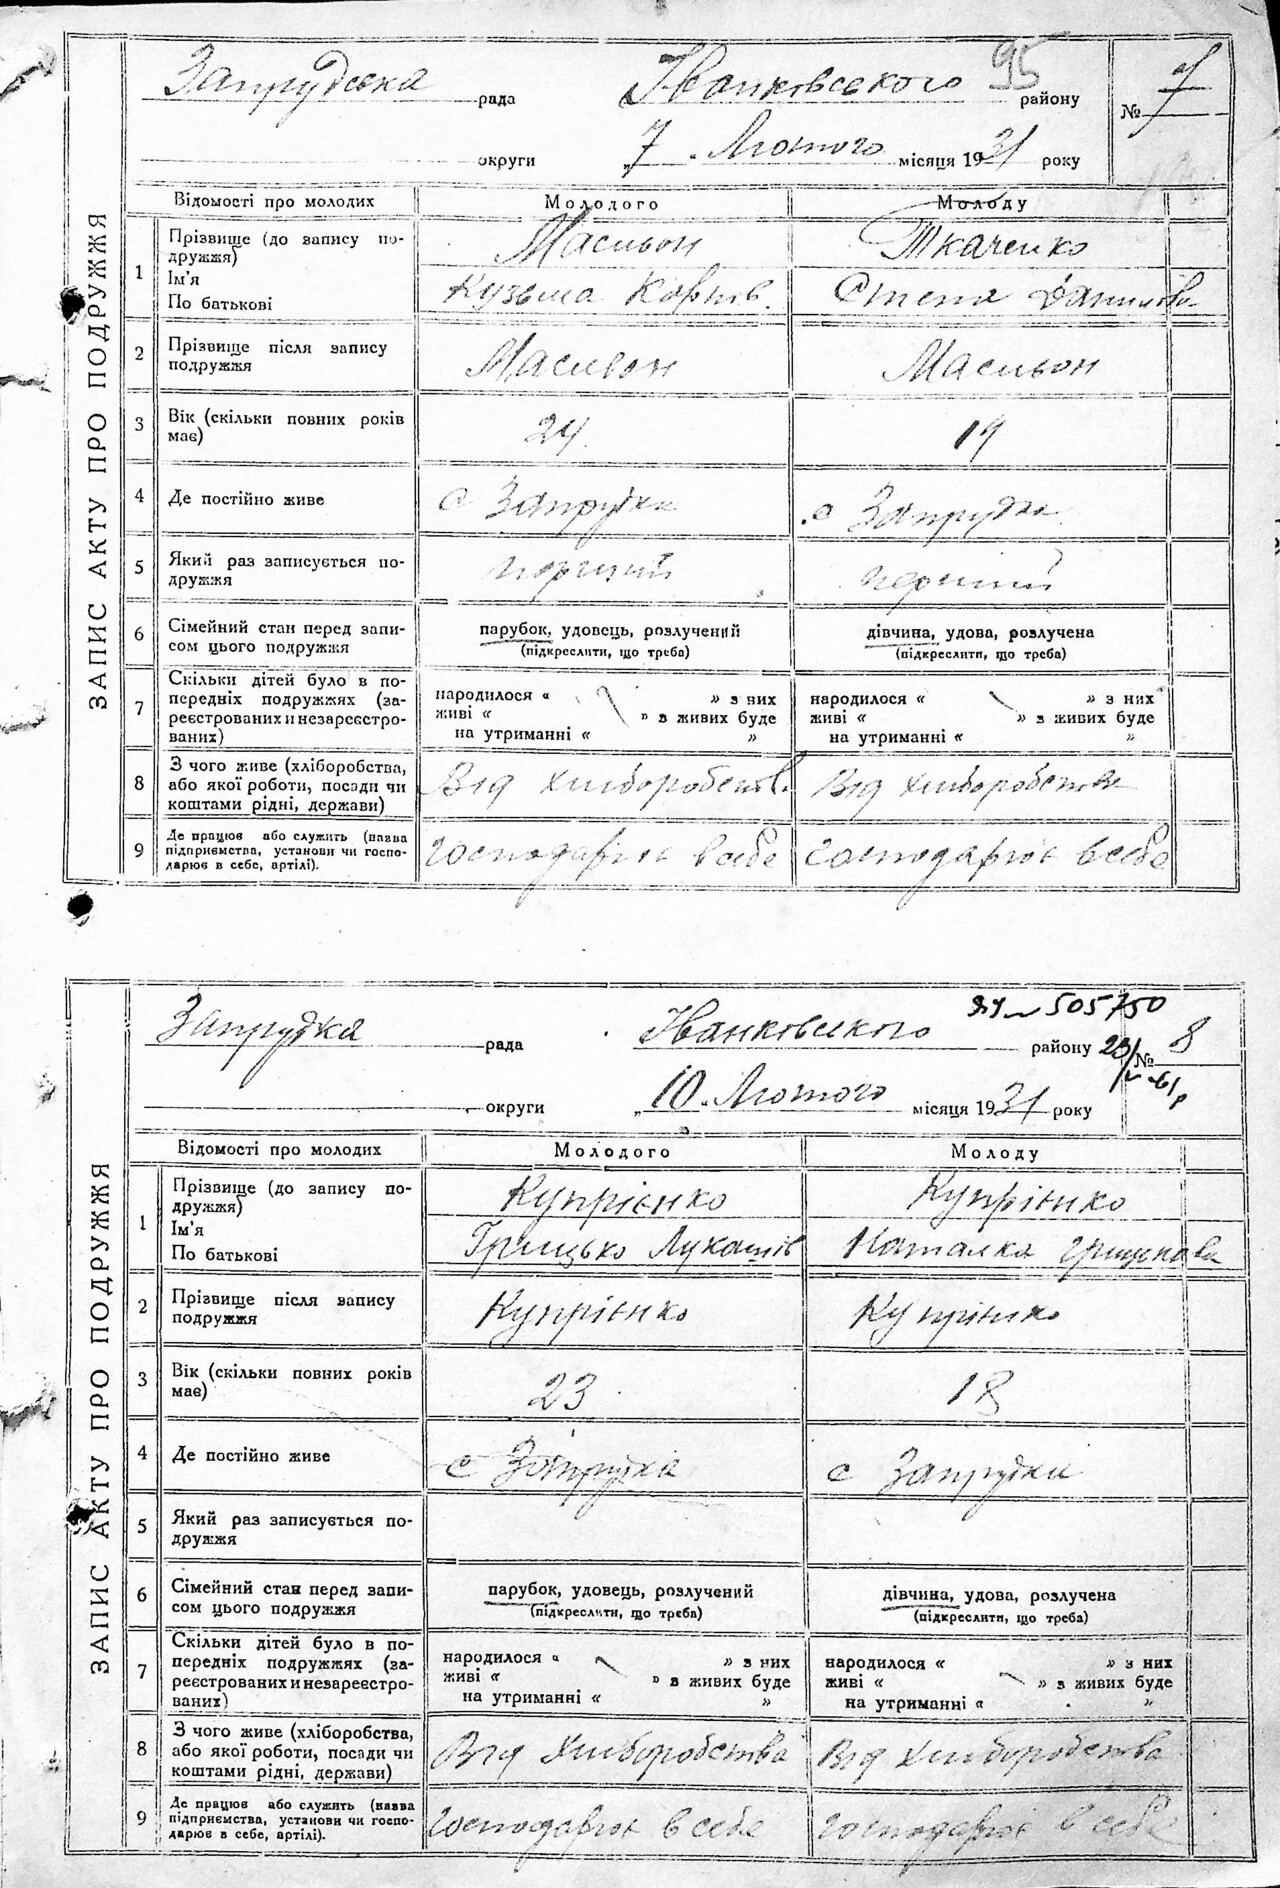 95
Запрудська рада Іванківського району № 7
округи „7“ Лютого місяця 1931 року
ЗАПИС АКТУ ПРО ПОДРУЖЖЯ
Відомості про молодих Молодого Молоду
1 Прізвище (до запису по- Масивон Ткаченко
дружжя)
Ім'я Кузьма Корнів
По батькові
2 Прізвище після запису Масивон Масивон
подружжя
3 Вік (скільки повних років 24 19
має)
4 Де постійно живе с Запрудка с Запрудка
5 Який раз записується по- перший перший
дружжя
6 Сімейний стан перед запи- парубок, удовець, розлучений дівчина, удова, розлучена
сом цього подружжя (підкреслити, що треба) (підкреслити, що треба)
7 Скільки дітей було в по- народилося « » з них народилося « » з них
передніх подружжях (за- живі « » в живих буде живі « » в живих буде
реєстрованих и незареєстро- на утриманні « » на утриманні « »
ваних)
8 З чого живе (хліборобства, Від хліборобств. Від хліборобства
або якої роботи, посади чи
коштами рідні, держави)
9 Де працює або служить (назва господарює в себе господарює в себе
підприємства, установи чи госпо-
дарює в себе, артілі).
ЯУ 505750
Запрудка рада Іванківського району 23/ № 8
округи „10“ Лютого місяця 1931 року
ЗАПИС АКТУ ПРО ПОДРУЖЖЯ
Відомості про молодих Молодого Молоду
1 Прізвище (до запису по- Купрієнко Купрієнко
дружжя)
Ім'я Грицько Лукашів Наталка Грицькова
По батькові
2 Прізвище після запису Купрієнко Купрієнко
подружжя
3 Вік (скільки повних років 23 18
має)
4 Де постійно живе с Запрудка с Запрудка
5 Який раз записується по-
дружжя
6 Сімейний стан перед запи- парубок, удовець, розлучений дівчина, удова, розлучена
сом цього подружжя (підкреслити, що треба) (підкреслити, що треба)
7 Скільки дітей було в по- народилося « » з них народилося « » з них
передніх подружжях (за- живі « » в живих буде живі « » в живих буде
реєстрованих и незареєстро- на утриманні « » на утриманні « »
ваних)
8 З чого живе (хліборобства, Від хліборобства Від хліборобства
або якої роботи, посади чи
коштами рідні, держави)
9 Де працює або служить (назва господарює в себе господарює в себе
підприємства, установи чи госпо-
дарює в себе, артілі).